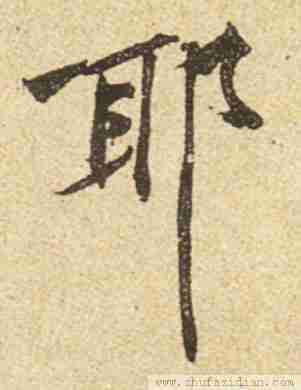 耶
www.shufazidian.com